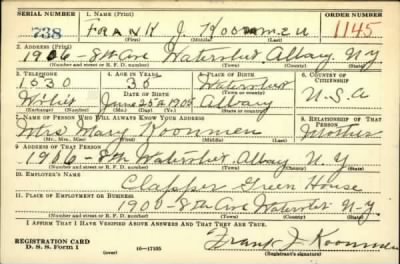 SERIAL NUMBER 1. NAME (Print) ORDER NUMBER
738 FRANK J 1145
(First) (Middle) (Last)
2. ADDRESS (Print)
1906-8th Ave Watervliet Albany N.Y
(Number and street or R. F. D. number) (Town) (County) (State)
3. TELEPHONE 4. AGE IN YEARS 5. PLACE OF BIRTH 6. COUNTRY OF CITIZENSHIP
1530 35 Watervliet
(Town or county)
DATE OF BIRTH U.S.A
June 25th 1905 Albany
(Exchange) (Number) (Mo.) (Day) (Yr.) (State or country)
7. NAME OF PERSON WHO WILL ALWAYS KNOW YOUR ADDRESS 8. RELATIONSHIP OF THAT PERSON
Mrs Mary Mother
(Mr., Mrs., Miss) (First) (Middle) (Last)
9. ADDRESS OF THAT PERSON
1906-8th Watervliet Albany N.Y
(Number and street or R. F. D. number) (Town) (County) (State)
10. EMPLOYER'S NAME
Clapper Green House
11. PLACE OF EMPLOYMENT OR BUSINESS
1900-8th Ave Watervliet N.Y.
(Number and street or R. F. D. number) (Town) (County) (State)
I AFFIRM THAT I HAVE VERIFIED ABOVE ANSWERS AND THAT THEY ARE TRUE.
REGISTRATION CARD
D. S. S. Form 1 (over) 16-17105 Frank J
(Registrant's signature)